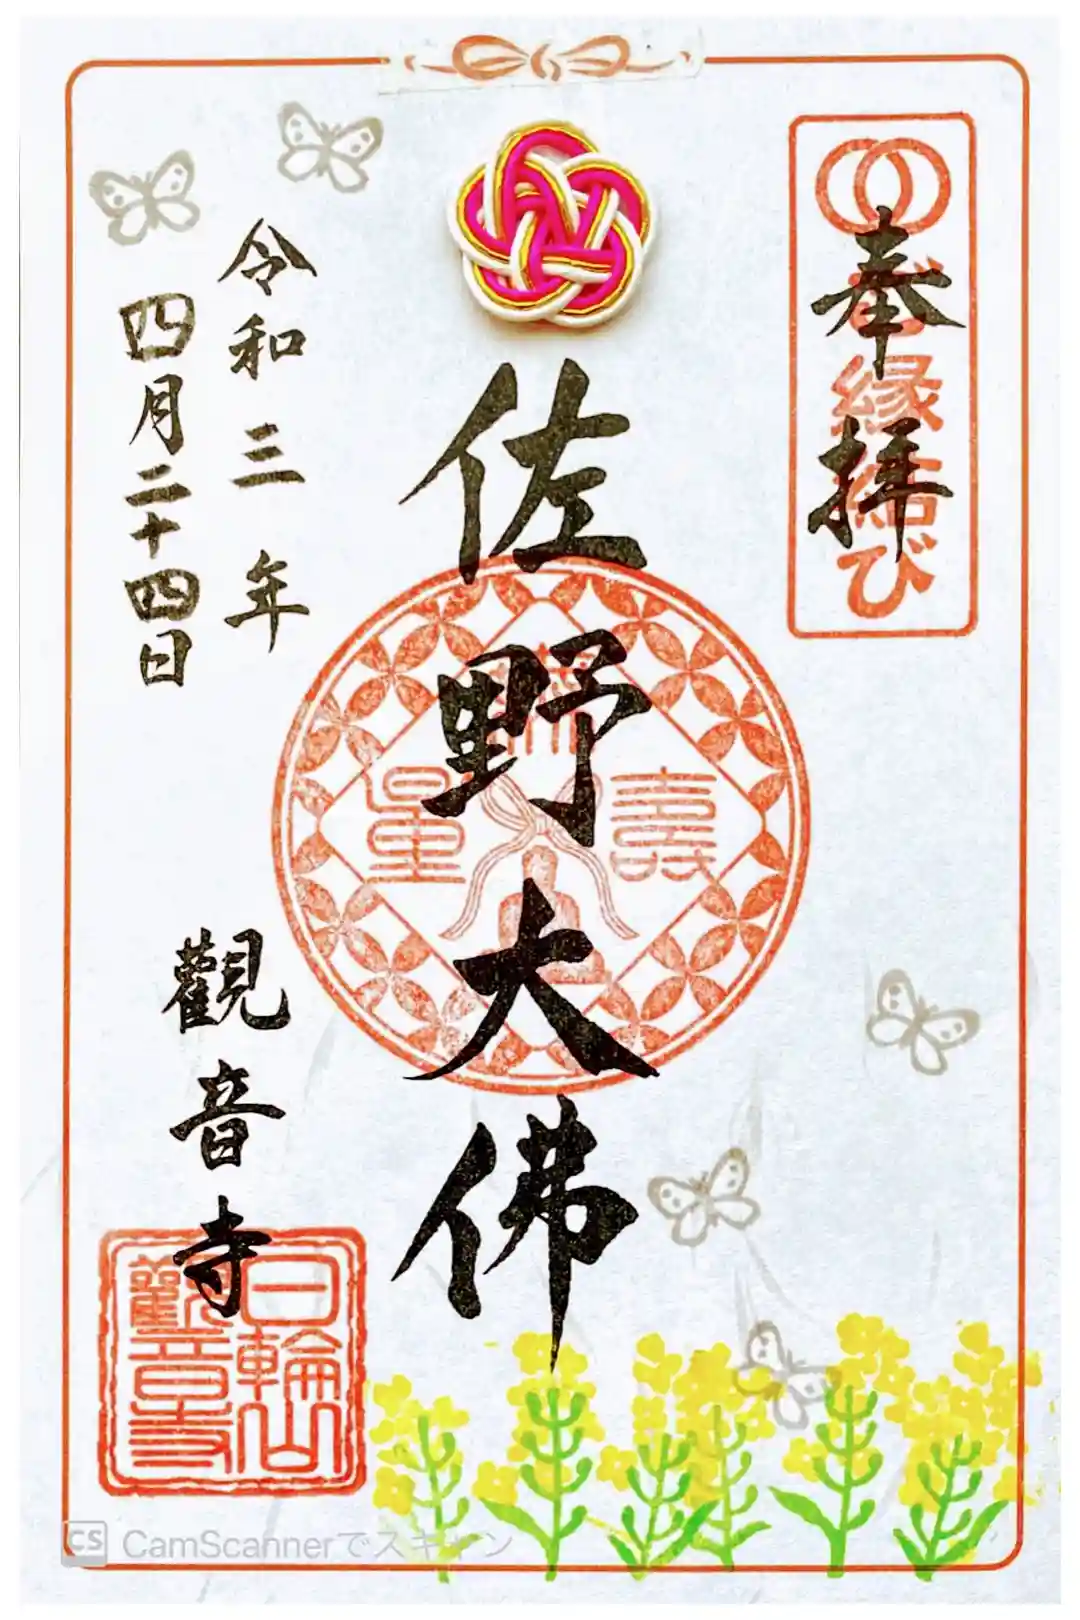 奉拝
ご縁結び
佐野大佛
無
壽
量
令和三年
四月二十四日
觀音寺
日輪山
觀音寺
CS CamScannerでスキャン